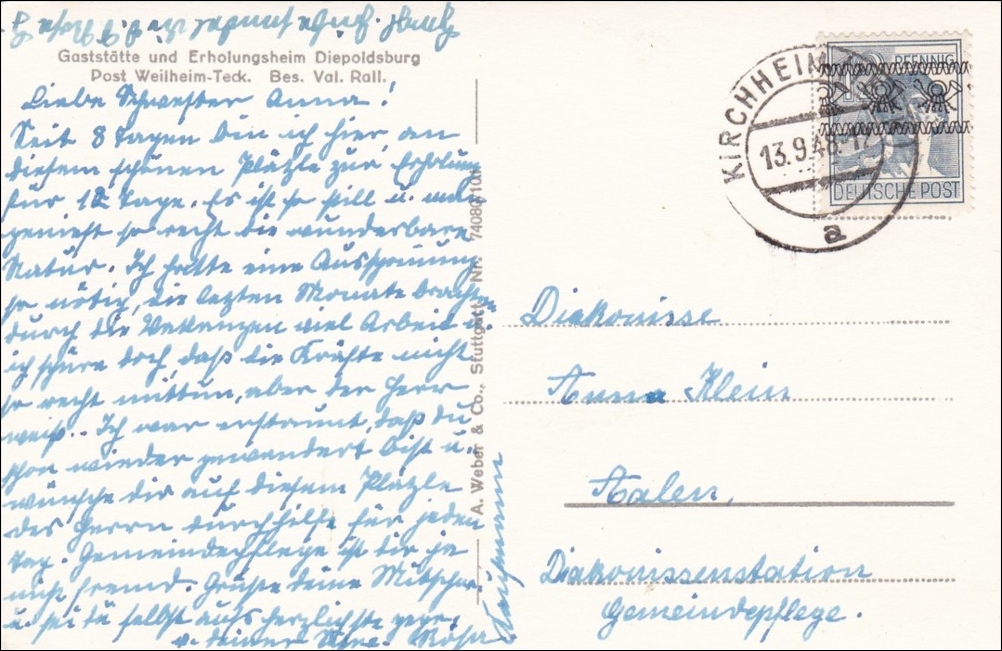 Gaststätte und Erholungsheim Diepoldsburg
Post Weilheim-Teck. Bes. Val. Rall.
Liebe Schwester Anna!
Seit 8 Tagen bin ich hier, an
diesem schönen Plätzle zur Erholung
für 12 Tage. Es ist so still u. man
genießt so recht die wunderbare
Natur. Ich hatte eine Ausspannung
so nötig, die letzten Monate brachten
durch die Vakanzen viel Arbeit u.
ich spüre doch, daß die Kräfte nicht
so recht mittun, aber der Herr
weiß. Ich war erstaunt, daß du
schon wieder gewandert bist u.
wünsche dir auf diesem Plätzle
des Herrn Durchhilfe für jeden
Tag. Gemeindepflege ist dir ja
nicht fremd. Grüße deine Mitschw.
u. sei du selbst aufs herzlichste gegr.
v. deiner Schw. Rosa
A. Weber & Co., Stuttgart Nr.
PFENNIG
DEUTSCHE POST
KIRCHHEIM
13.9.48.-17
a
Diakonisse
Anna Klein
Aalen,
Diakonissenstation
Gemeindepflege.